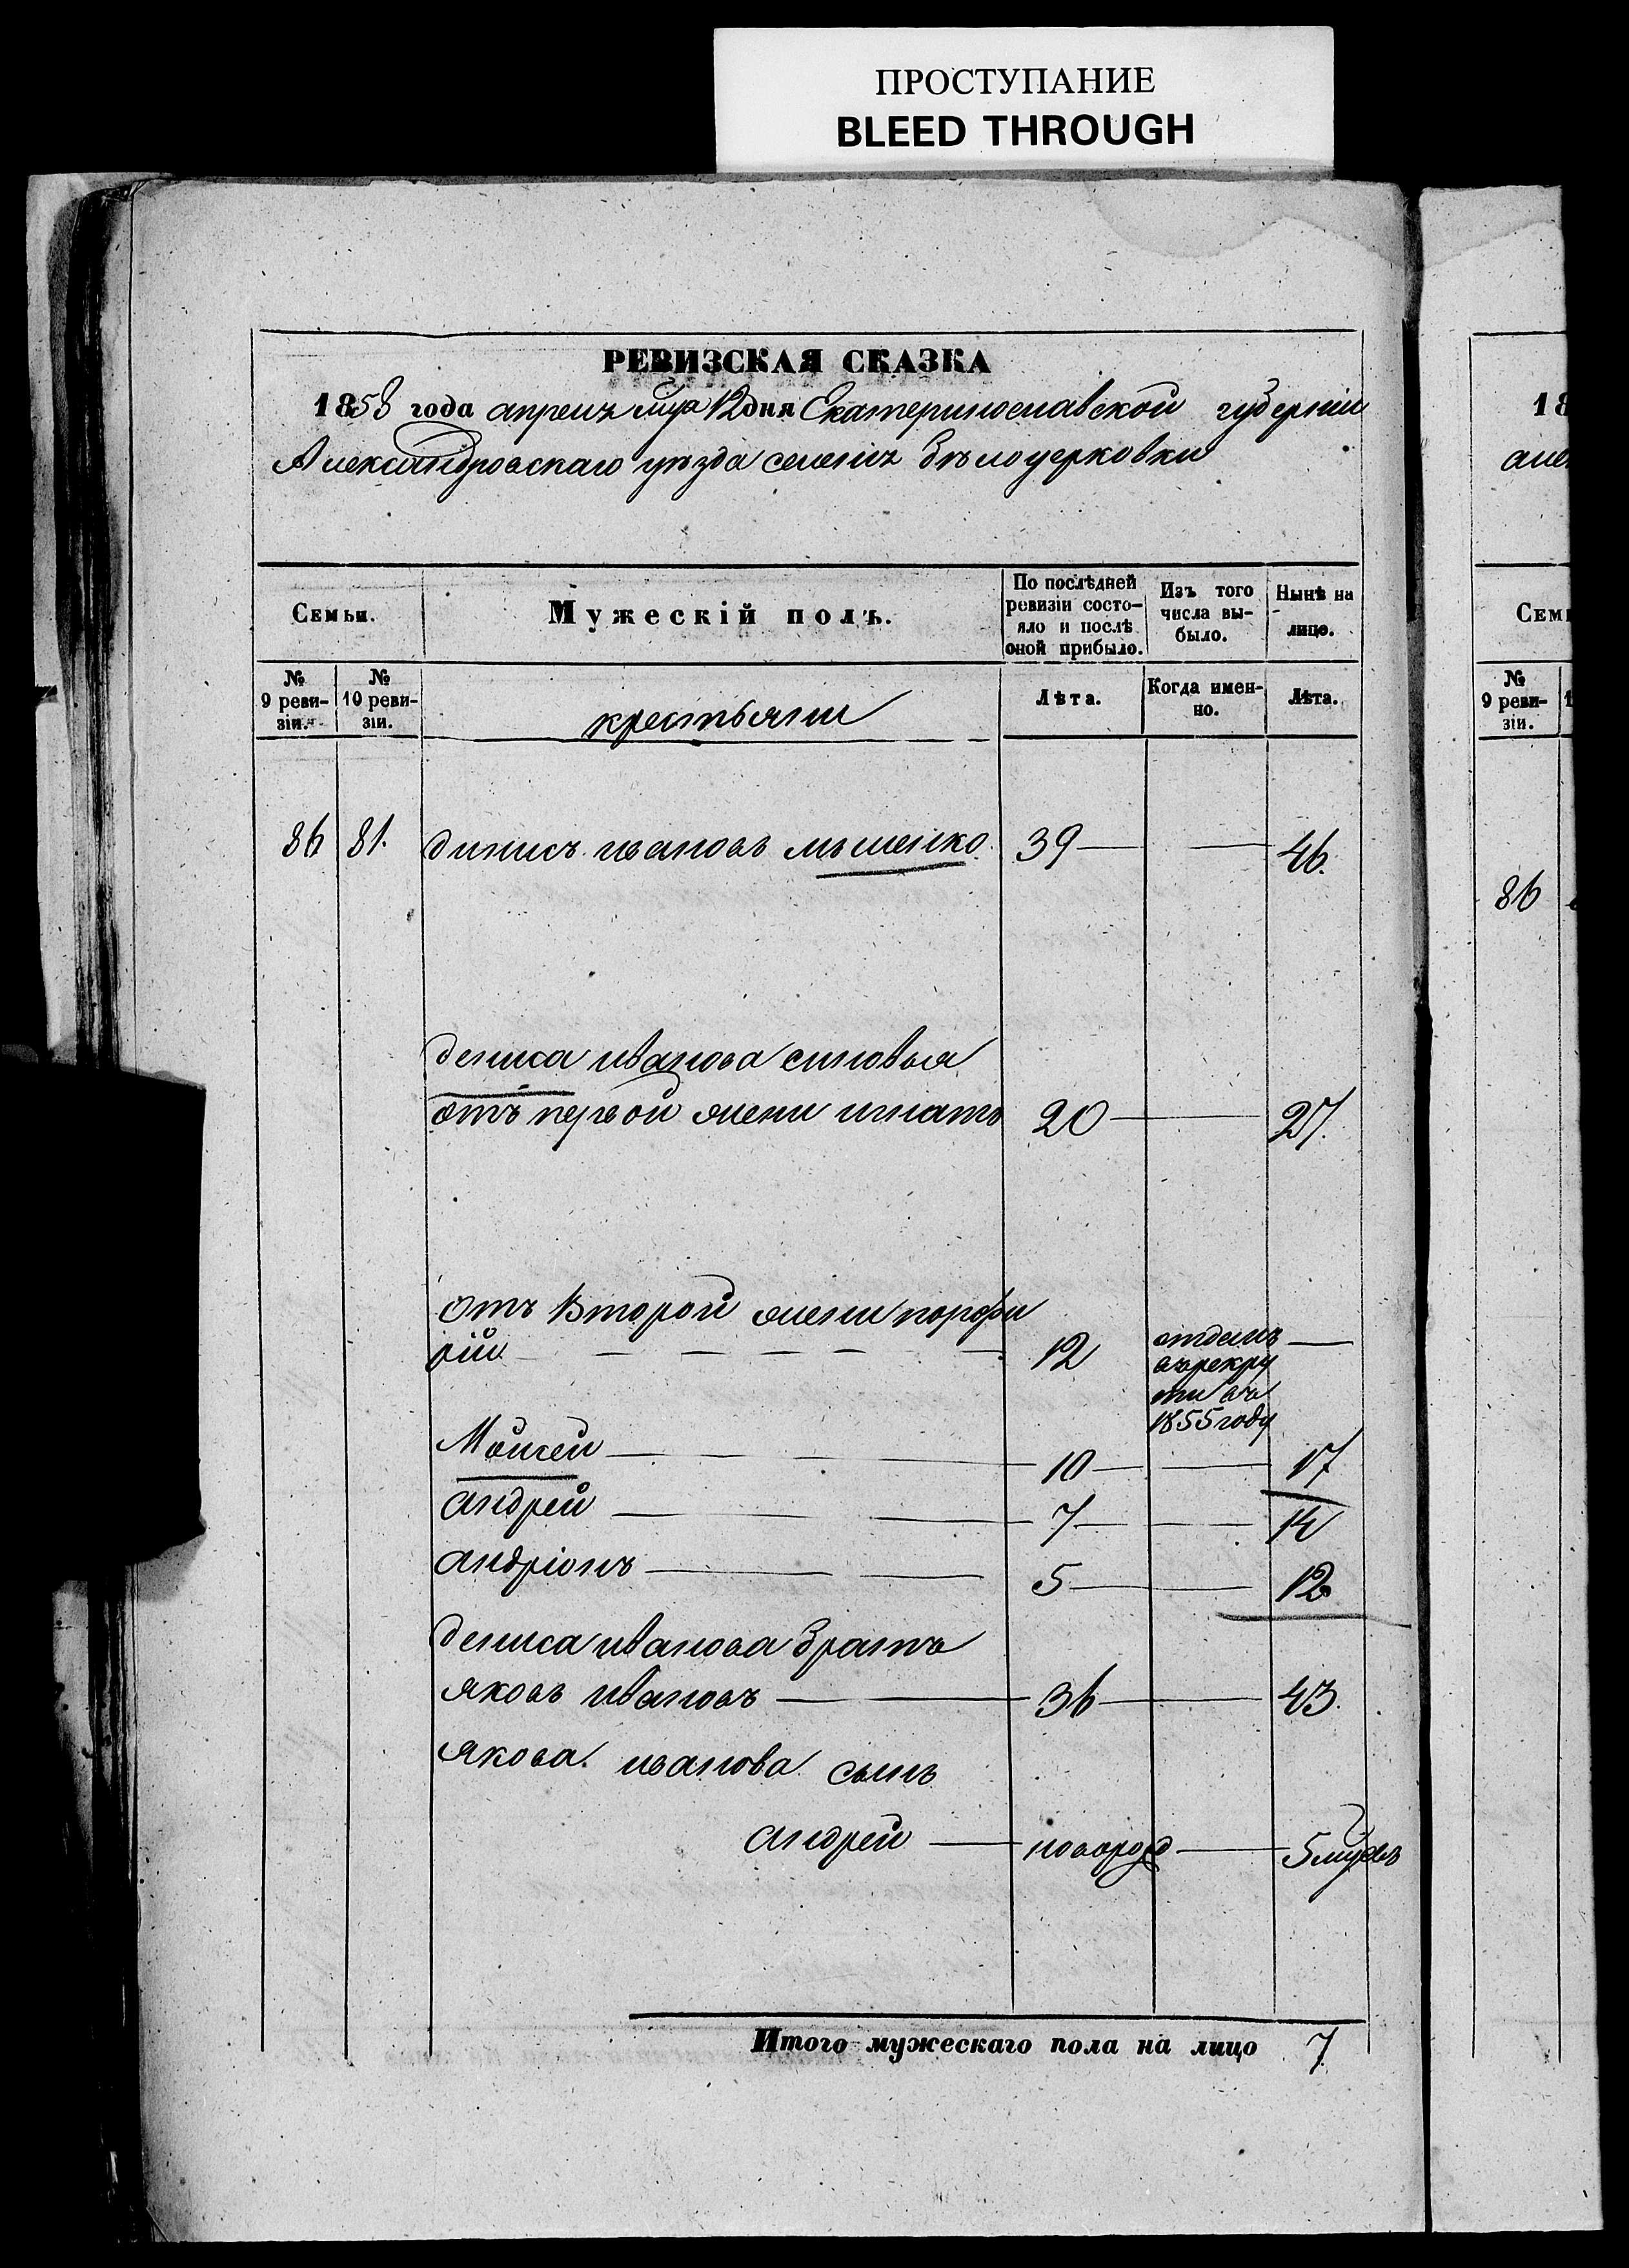 ПРОСТУПАНИЕ
BLEED THROUGH
РЕВИЗСКАЯ СКАЗКА
1858 года апреля мца 12 дня Екатеринославской губернии
Александровскаго уезда селения Белоцерковки
18
Семьи.
Мужескій полъ.
По послѣдней ревизіи состо-яло и послѣ оной прибыло.
Изъ того числа вы-было.
Нынѣ на лицо.
Сем
№ 9 реви-зіи.
№ 10 реви-зіи.
крестьяни
Лѣта.
Когда имен-но.
Лѣта.
№ 9 реви-зіи.
86 81. динисъ ивановъ 39 46.
86
дениса иванова синовья
отъ первой жени игнатъ 20 27.
отъ второй жени порфи
рій 12 отданъ
въ рекру
ти въ
1855 году
Мойсей 10 17
андрей 7 14
андріонъ 5 12
дениса иванова братъ
яковъ ивановъ 36 43.
якова иванова сынъ
андрей новорожд 5 мцовъ
Итого мужескаго пола на лицо 7